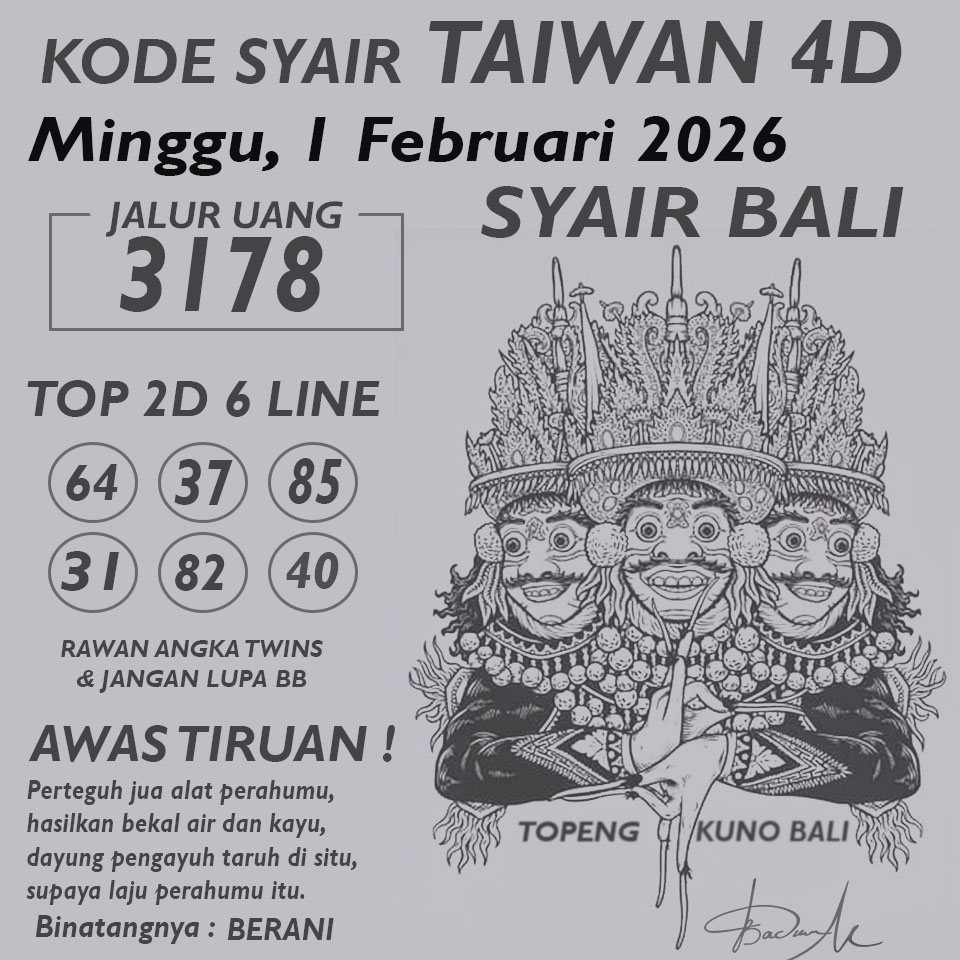 KODE SYAIR TAIWAN 4D
Minggu, 1 Februari 2026
SYAIR BALI
JALUR UANG
3178
TOP 2D 6 LINE
64 37 85
31 82 40
RAWAN ANGKA TWINS
& JANGAN LUPA BB
AWAS TIRUAN !
Perteguh jua alat perahumu,
hasilkan bekal air dan kayu,
dayung pengayuh taruh di situ,
supaya laju perahumu itu.
Binatangnya : BERANI
TOPENG KUNO BALI